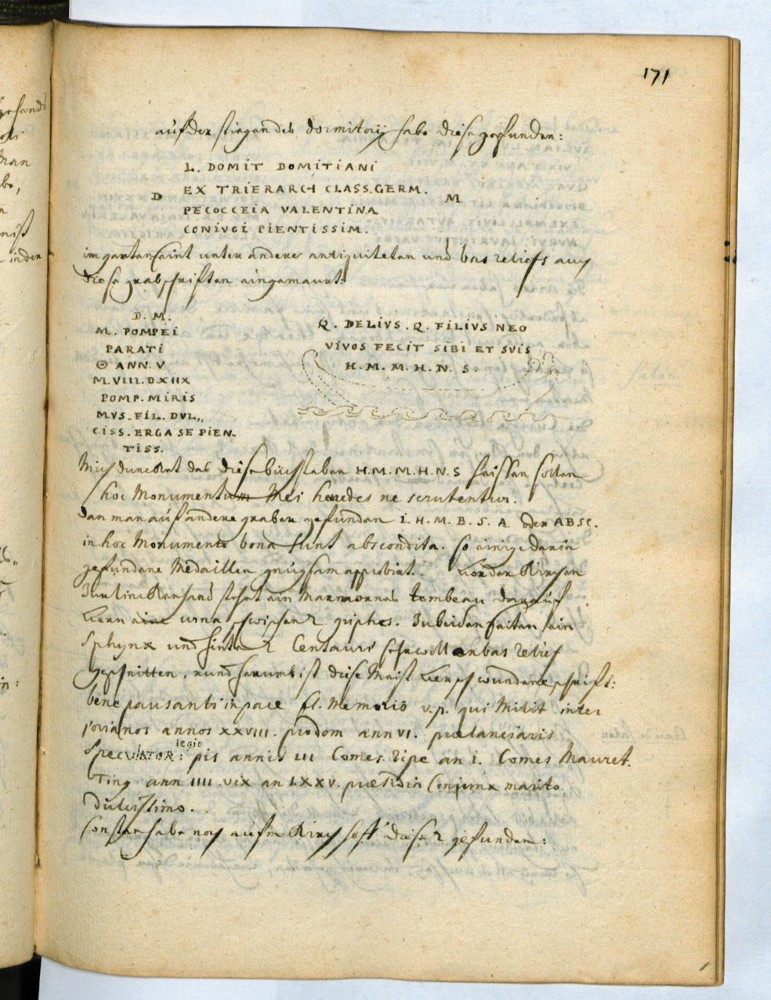 171
auf der stiegen des dormitorij habe diese gefunden:
L. DOMIT DOMITIANI
D EX TRIERARCH CLASS.GERM. M
PECOCCEIA VALENTINA
CONIVGI PIENTISSIM.
im garten seint unter andere antiquiteten und bas reliefs auch
diese grabschriften eingemaurt:
D. M.
M. POMPEI
PARATI
Θ ANN. V
M. VIII. D. XIIX
POMP. MIRIS
MVS. FIL. DVL,,
CISS. ERGA SE PIEN.
TISS.
Q. DELIVS. Q. FILIVS NEO
VIVOS FECIT SIBI ET SVIS
H. M. M. H. N. S.
Mich duncket das diese buchstaben H.M.M.H.N.S heissen sollen
hoc Monumentum Mei heredes ne scrutentur.
dan man auf andere graber gefunden I. H. M. B. S. A oder ABSC.
in hoc Monumento bona sunt abscondita. so einige darin
gefundene Medaillen gnugsam approbirt. Vor der Kirchen
zur linken hand stehet ein Marmornes tombeau darauf
eine urna zwischen 2 griphes. Zu beiden seiten ein
Sphynx und hinten 2 Centauri sehr woll en bas relief
geschnitten, rund herumb ist diese schrift:
bene pausanti in pace fl. Memorio v.p. qui Milit inter
jovianos annos XXVIII. prodom ann VI. prelanciaris
SpecVLATOR: legio pis annis III Comes ripe an I. Comes Mauret.
Ting ann IIII. vix an LXXV. præsidia Conjunx marito
dulcissimo.
Sonsten habe noch aufm Kirchhoff diese 2 gefunden: